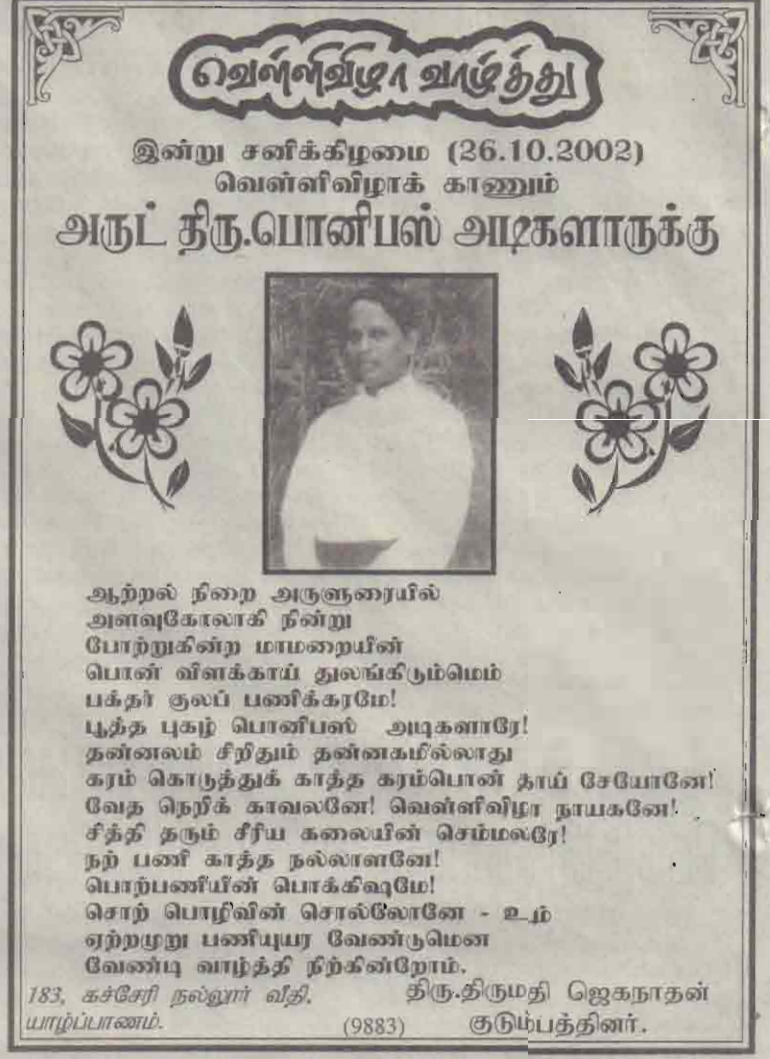 வெள்ளிவிழா வாழ்த்து
இன்று சனிக்கிழமை (26.10.2002)
வெள்ளிவிழாக் காணும்
அருட் திரு.பொனிபஸ் அடிகளாருக்கு
ஆற்றல் நிறை அருளுரையில்
அளவுகோலாகி நின்று
போற்றுகின்ற மாமறையின்
பொன் விளக்காய் துலங்கிடும்மெம்
பக்தர் குலப் பணிக்கரமே!
பூத்த புகழ் பொனிபஸ் அடிகளாரே!
தன்னலம் சிறிதும் தன்னகமில்லாது
கரம் கொடுத்துக் காத்த கரம்பொன் தாய் சேயோனே!
வேத நெறிக் காவலனே! வெள்ளிவிழா நாயகனே!
சித்தி தரும் சீரிய கலையின் செம்மலரே!
நற் பணி காத்த நல்லாளனே!
பொற்பணியின் பொக்கிஷமே!
சொற் பொழிவின் சொல்லோனே - உம்
ஏற்றமுறு பணியுயர வேண்டுமென
வேண்டி வாழ்த்தி நிற்கின்றோம்.
183, கச்சேரி நல்லூர் வீதி,
யாழ்ப்பாணம்.
(9883)
திரு.திருமதி ஜெகநாதன்
குடும்பத்தினர்.